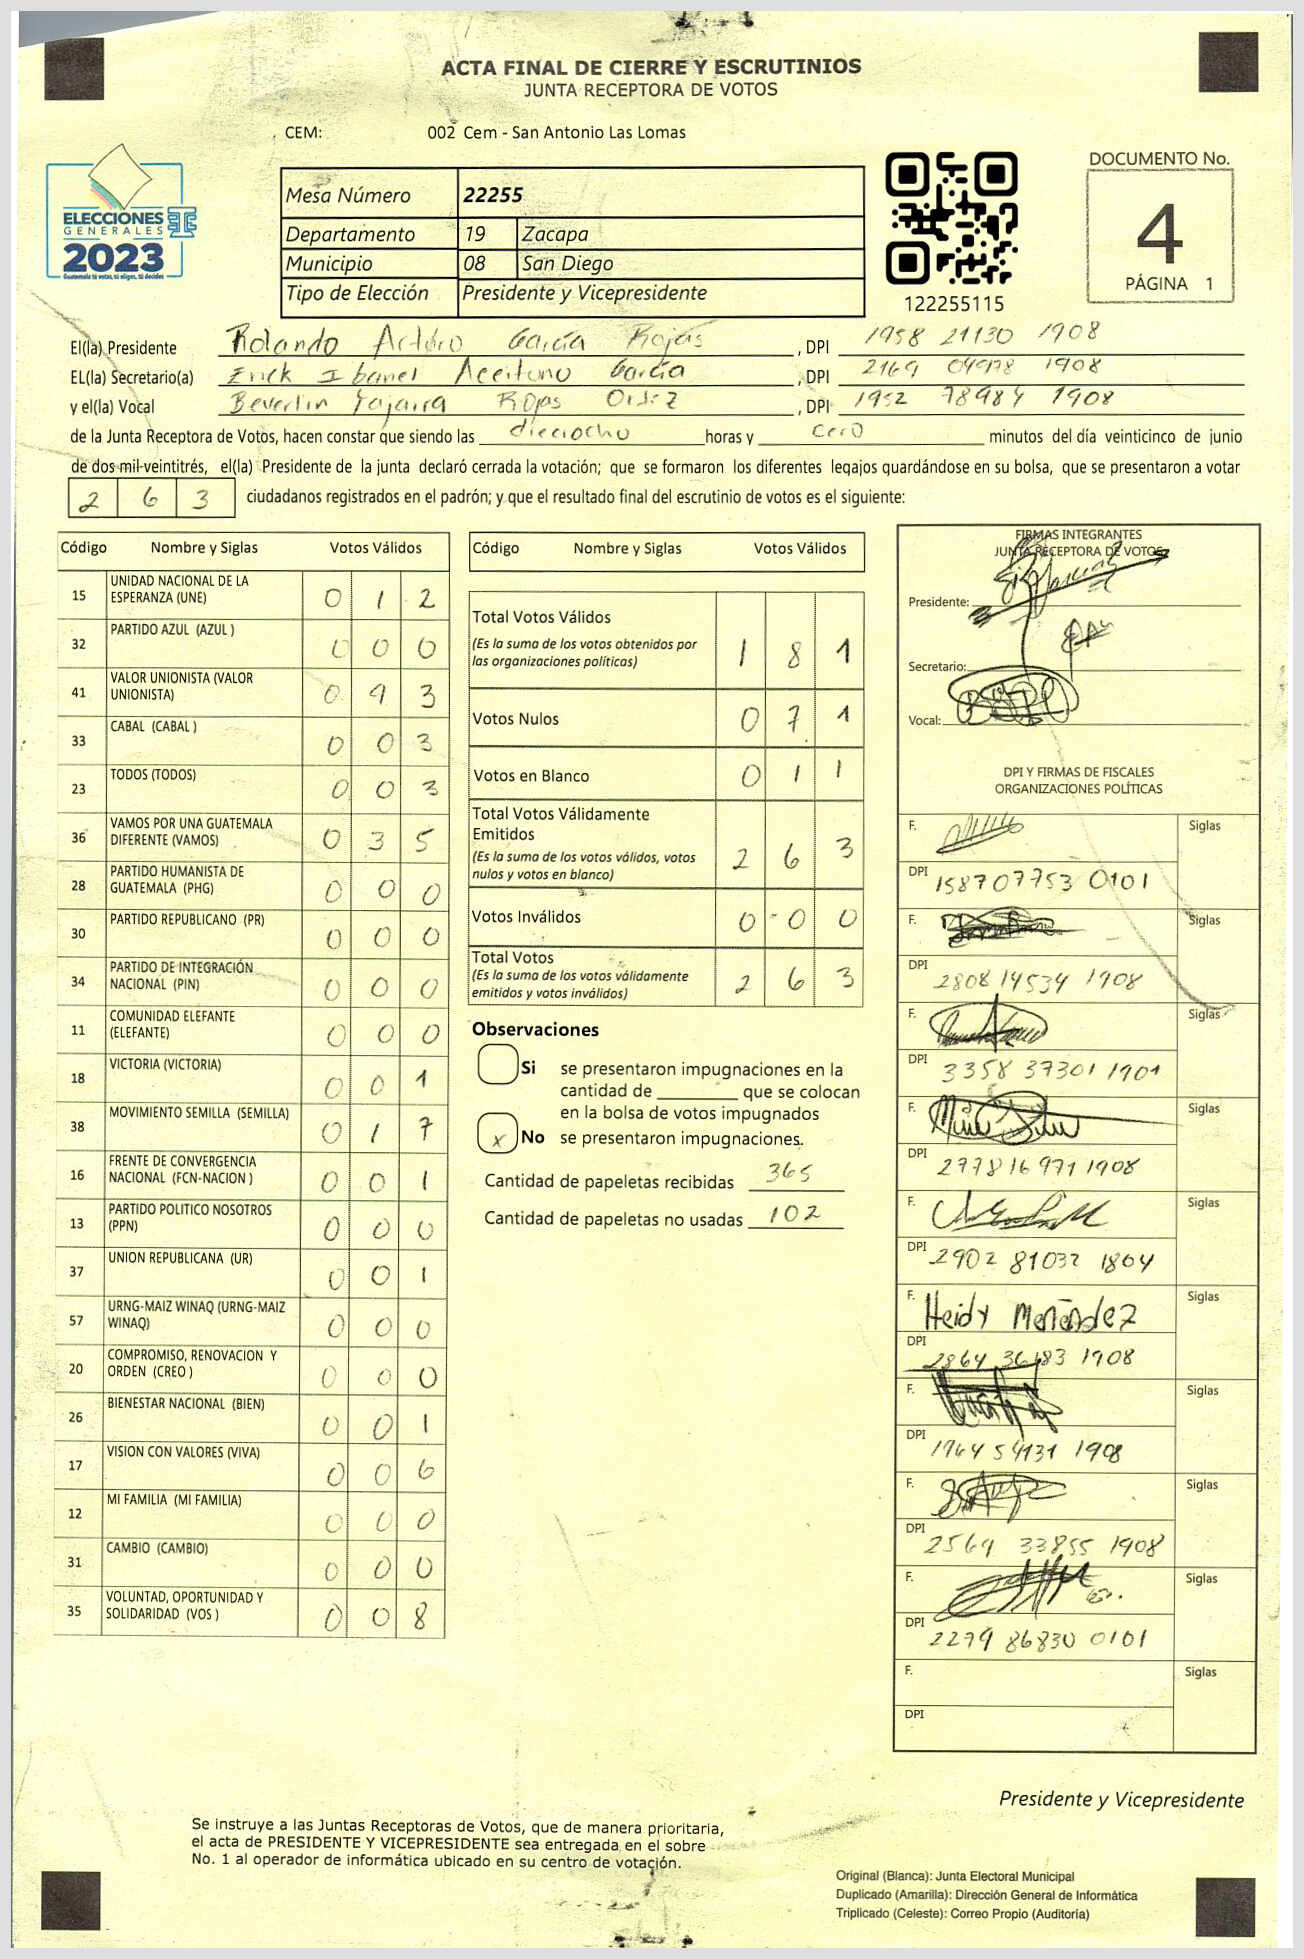 ACTA FINAL DE CIERRE Y ESCRUTINIOS
JUNTA RECEPTORA DE VOTOS
CEM: 002 Cem - San Antonio Las Lomas
ELECCIONES
GENERALES
2023
Guatemala tú votas, tú eliges, tú decides
Mesa Número 22255
Departamento 19 Zacapa
Municipio 08 San Diego
Tipo de Elección Presidente y Vicepresidente
122255115
DOCUMENTO No.
4
PÁGINA 1
El(la) Presidente Rolando Arturo García Rojas, DPI 1958 21130 1908
EL(la) Secretario(a) Erick Ibanel Aceituno García, DPI 2169 04978 1908
y el(la) Vocal Beverlin Yajaira Rojas, DPI 1952 78984 1908
de la Junta Receptora de Votos, hacen constar que siendo las dieciocho horas y cero minutos del día veinticinco de junio
de dos mil veintitrés, el(la) Presidente de la junta declaró cerrada la votación; que se formaron los diferentes legajos guardándose en su bolsa, que se presentaron a votar
2 6 3 ciudadanos registrados en el padrón; y que el resultado final del escrutinio de votos es el siguiente:
Código Nombre y Siglas Votos Válidos
15 UNIDAD NACIONAL DE LA ESPERANZA (UNE) 0 1 2
32 PARTIDO AZUL (AZUL ) 0 0 0
41 VALOR UNIONISTA (VALOR UNIONISTA) 0 9 3
33 CABAL (CABAL ) 0 0 3
23 TODOS (TODOS) 0 0 3
36 VAMOS POR UNA GUATEMALA DIFERENTE (VAMOS) 0 3 5
28 PARTIDO HUMANISTA DE GUATEMALA (PHG) 0 0 0
30 PARTIDO REPUBLICANO (PR) 0 0 0
34 PARTIDO DE INTEGRACIÓN NACIONAL (PIN) 0 0 0
11 COMUNIDAD ELEFANTE (ELEFANTE) 0 0 0
18 VICTORIA (VICTORIA) 0 0 1
38 MOVIMIENTO SEMILLA (SEMILLA) 0 1 7
16 FRENTE DE CONVERGENCIA NACIONAL (FCN-NACION ) 0 0 1
13 PARTIDO POLITICO NOSOTROS (PPN) 0 0 0
37 UNION REPUBLICANA (UR) 0 0 1
57 URNG-MAIZ WINAQ (URNG-MAIZ WINAQ) 0 0 0
20 COMPROMISO, RENOVACION Y ORDEN (CREO ) 0 0 0
26 BIENESTAR NACIONAL (BIEN) 0 0 1
17 VISION CON VALORES (VIVA) 0 0 6
12 MI FAMILIA (MI FAMILIA) 0 0 0
31 CAMBIO (CAMBIO) 0 0 0
35 VOLUNTAD, OPORTUNIDAD Y SOLIDARIDAD (VOS ) 0 0 8
Código Nombre y Siglas Votos Válidos
Total Votos Válidos 1 8 1
(Es la suma de los votos obtenidos por
las organizaciones políticas)
Votos Nulos 0 7 1
Votos en Blanco 0 1 1
Total Votos Válidamente
Emitidos 2 6 3
(Es la suma de los votos válidos, votos
nulos y votos en blanco)
Votos Inválidos 0 - 0 0
Total Votos 2 6 3
(Es la suma de los votos válidamente
emitidos y votos inválidos)
Observaciones
Si se presentaron impugnaciones en la
cantidad de ________ que se colocan
en la bolsa de votos impugnados
x No se presentaron impugnaciones.
Cantidad de papeletas recibidas 365
Cantidad de papeletas no usadas 102
FIRMAS INTEGRANTES
JUNTA RECEPTORA DE VOTOS
Presidente:
Secretario:
Vocal:
DPI Y FIRMAS DE FISCALES
ORGANIZACIONES POLÍTICAS
F. Siglas
DPI 158707753 0101
F. Siglas
DPI 2808 14534 1908
F. Siglas
DPI 3358 37301 1901
F. Siglas
DPI 2778 16971 1908
F. Siglas
DPI 2902 81032 1804
F. Heidy Menéndez Siglas
DPI 2864 36183 1908
F. Siglas
DPI 1764 54131 1908
F. Siglas
DPI 2569 33855 1908
F. Siglas
DPI 2279 86830 0101
F. Siglas
DPI
Presidente y Vicepresidente
Se instruye a las Juntas Receptoras de Votos, que de manera prioritaria,
el acta de PRESIDENTE Y VICEPRESIDENTE sea entregada en el sobre
No. 1 al operador de informática ubicado en su centro de votación.
Original (Blanca): Junta Electoral Municipal
Duplicado (Amarilla): Dirección General de Informática
Triplicado (Celeste): Correo Propio (Auditoría)